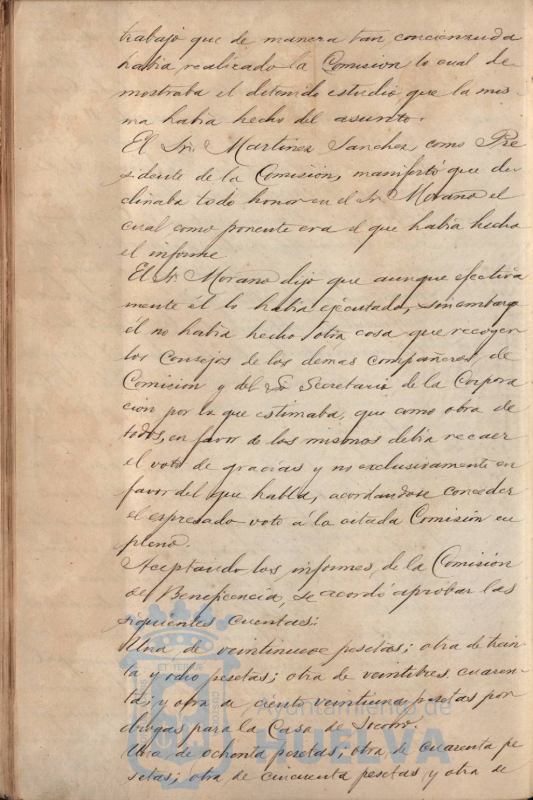 trabajo que de manera tan concienzuda
habia realizado la Comision lo cual de
mostraba el detenido estudio que la mis-
ma habia hecho del asunto.
El Sr. Martinez Sanchez como Pre
sidente de la Comisión, manifestó que de
clinaba todo honor en el Sr. Morano el
cual como ponente era el que habia hecho
el informe
El Sr. Morano dijo que aunque efectiva
mente él lo habia ejecutado, sin embargo
él no habia hecho otra cosa que recoger
los Consejos de los demas compañeros de
Comision y del Secretario de la Corpora
ción por lo que estimaba, que como obra de
todos, en favor de los mismos debia recaer
el voto de gracias y no exclusivamente en
favor del que habla, acordandose conceder
el espresado voto á la citada Comisión en
pleno.
Aceptando los informes de la Comisión
de Beneficencia, se acordó aprobar las
siguientes cuentas:
Una de veintinueve pesetas; otra de trein
ta y ocho pesetas; otra de veintitres, cuaren-
ta; y otra de ciento veintiuna pesetas por
drogas para la Casa de Socorro.
Una de ochenta pesetas; otra de cuarenta pe
setas; otra de cincuenta pesetas y otra de
Ayuntamiento de
HUELVA